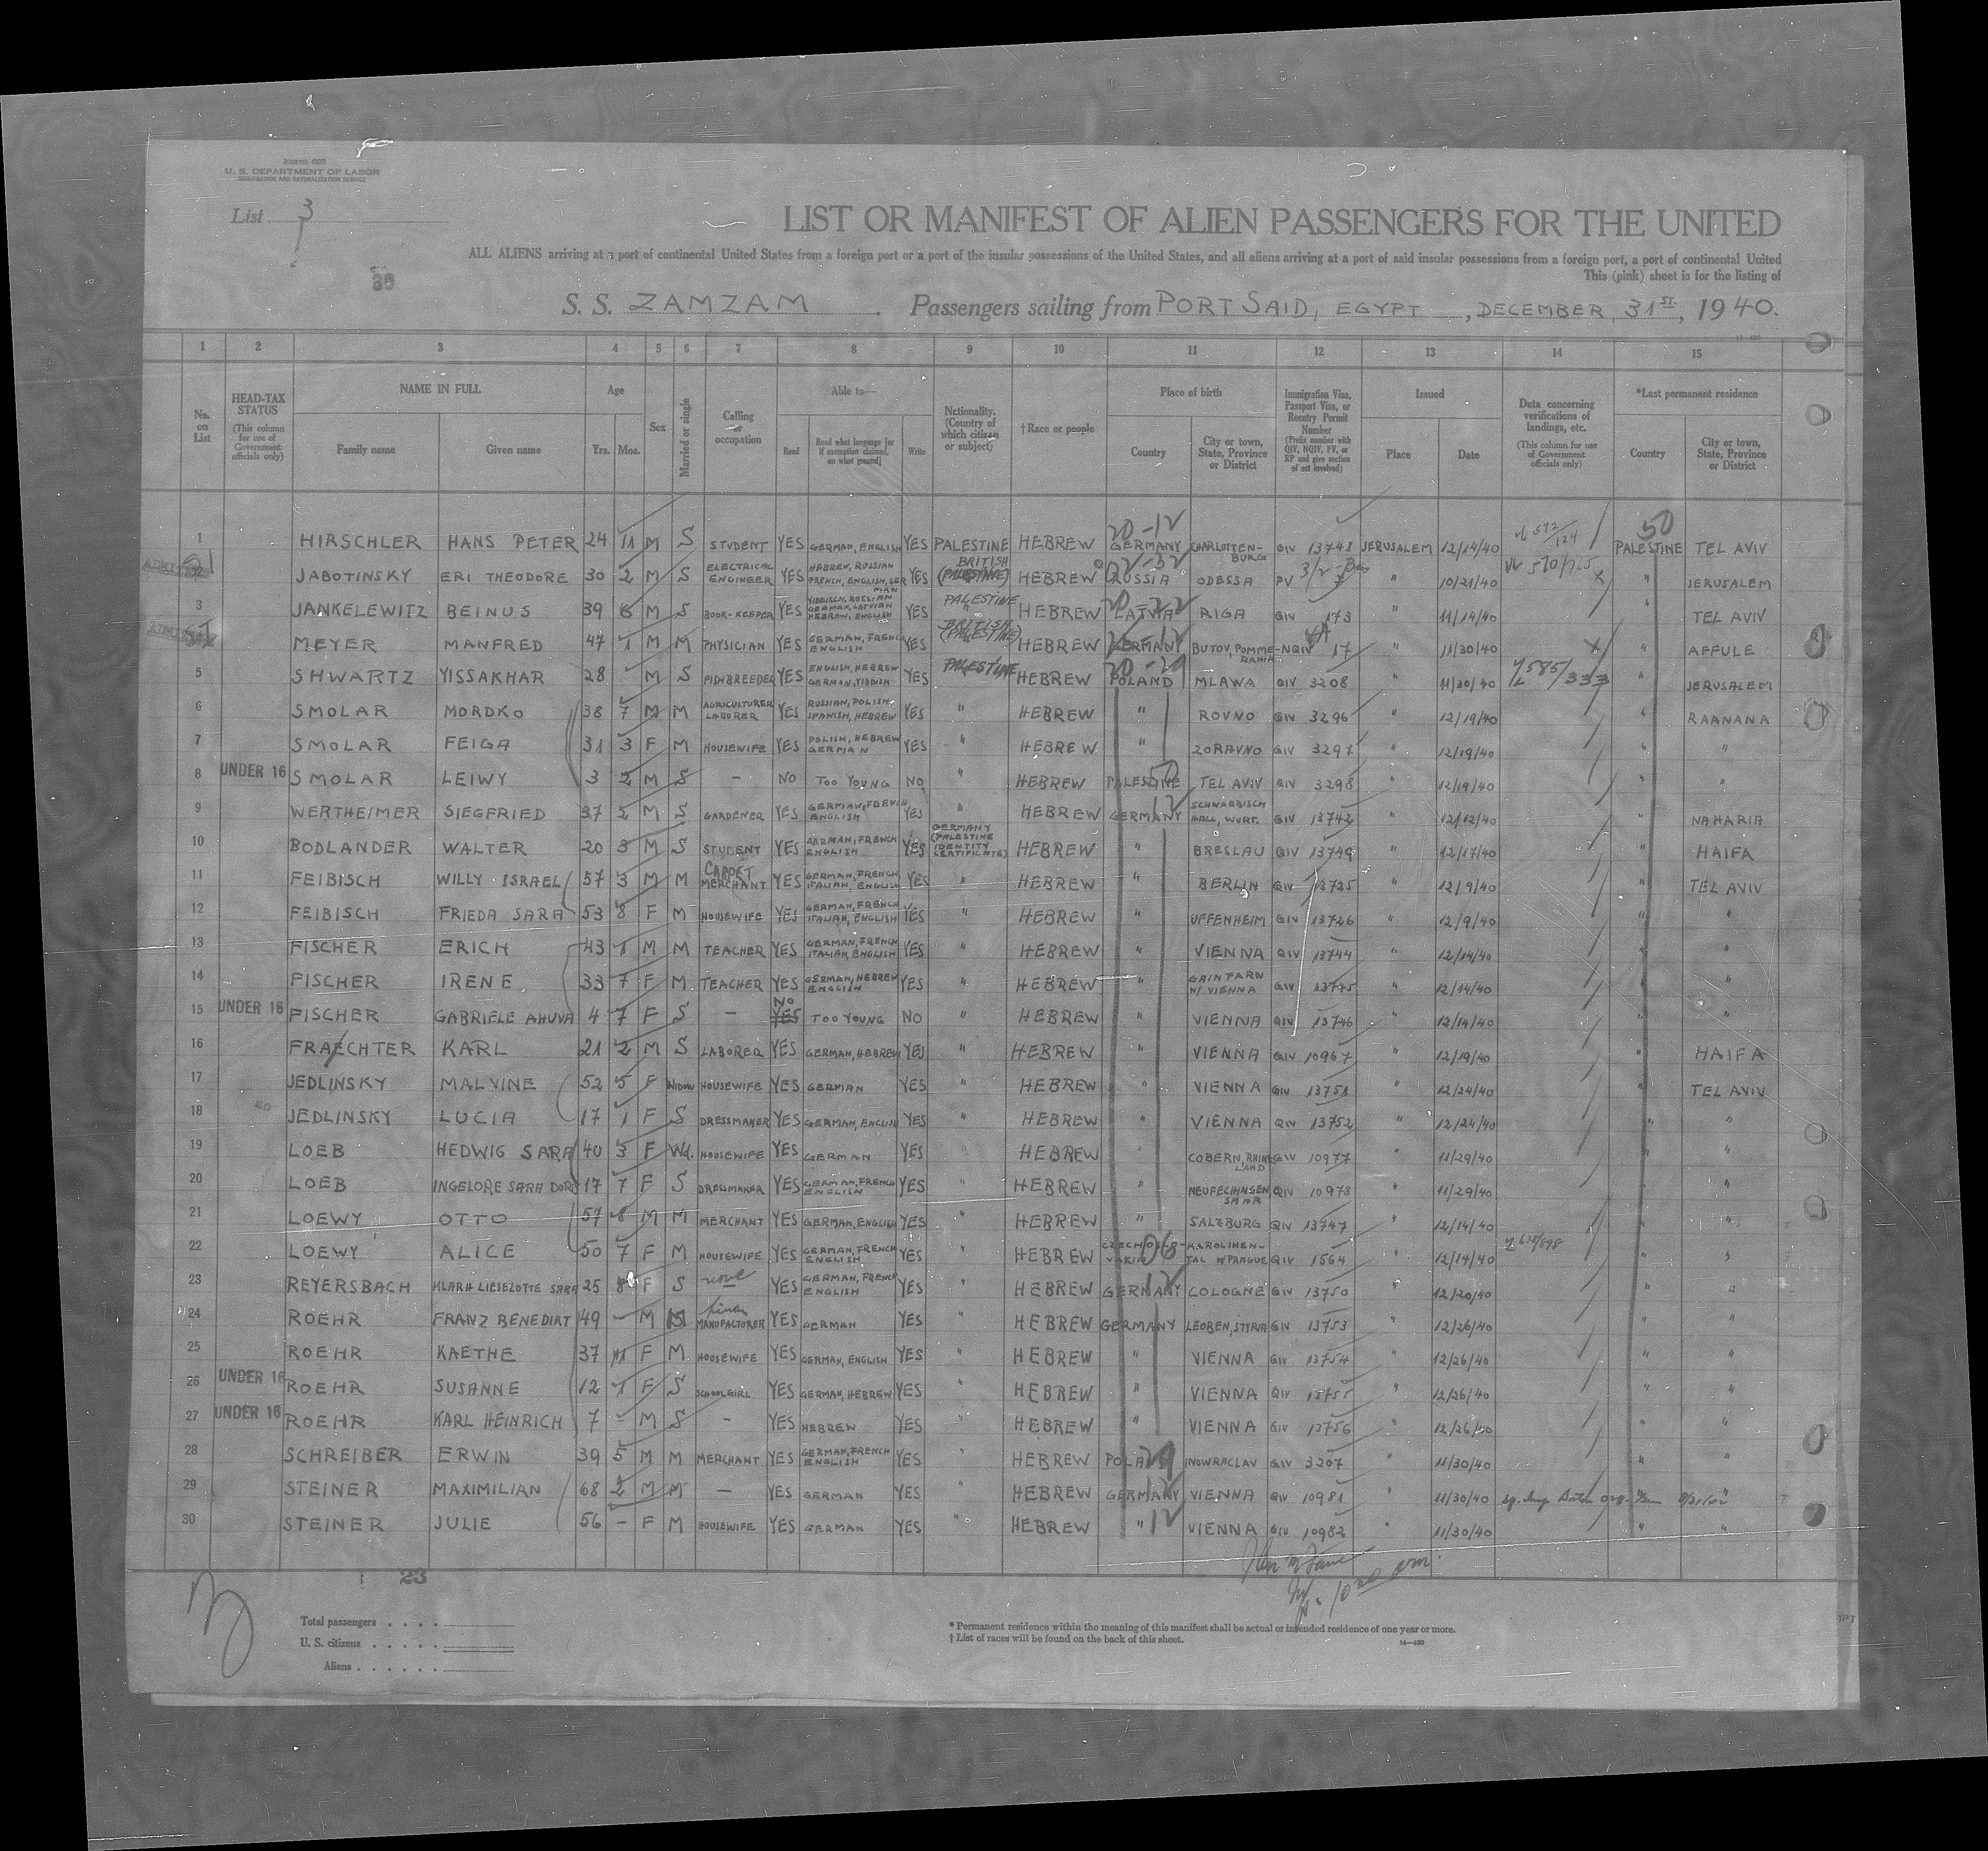 Form 600
U. S. DEPARTMENT OF LABOR
IMMIGRATION AND NATURALIZATION SERVICE
List 3
LIST OR MANIFEST OF ALIEN PASSENGERS FOR THE UNITED
ALL ALIENS arriving at a port of continental United States from a foreign port or a port of the insular possessions of the United States, and all aliens arriving at a port of said insular possessions from a foreign port, a port of continental United
This (pink) sheet is for the listing of
30
S. S. ZAMZAM . Passengers sailing from PORT SAID, EGYPT, DECEMBER, 31ST, 1940.
1 2 3 4 5 6 7 8 9 10 11 12 13 14 15
No. on List
HEAD-TAX STATUS (This column for use of Government officials only)
NAME IN FULL Family name Given name
Age Yrs. Mos.
Sex
Married or single
Calling or occupation
Able to— Read Read what language [or if exemption claimed, on what ground] Write
Nationality. (Country of which citizen or subject)
†Race or people
Place of birth Country City or town, State, Province or District
Immigration Visa, Passport Visa, or Reentry Permit Number (Prefix number with QIV, NQIV, PV, or RP and give section of act involved)
Issued Place Date
Data concerning verifications of landings, etc. (This column for use of Government officials only)
*Last permanent residence Country City or town, State, Province or District
1 HIRSCHLER HANS PETER 24 11 M S STUDENT YES GERMAN, ENGLISH YES PALESTINE HEBREW 20-12 GERMANY CHARLOTTENBURG QIV 13748 JERUSALEM 12/14/40 50 PALESTINE TEL AVIV
JABOTINSKY ERI THEODORE 30 2 M S ELECTRICAL ENGINEER YES HEBREW, RUSSIAN FRENCH, ENGLISH, GERMAN YES BRITISH (PALESTINE) HEBREW RUSSIA ODESSA PV " 10/21/40 X " JERUSALEM
3 JANKELEWITZ BEINUS 39 6 M S BOOK-KEEPER YES YIDDISCH, RUSSIAN GERMAN, LATVIAN HEBREW, ENGLISH YES PALESTINE HEBREW LATVIA RIGA QIV 173 " 11/14/40 " TEL AVIV
MEYER MANFRED 47 1 M M PHYSICIAN YES GERMAN, FRENCH ENGLISH YES BRITISH (PALESTINE) HEBREW GERMANY BUTOV, POMMERANIA NQIV 17 " 11/30/40 X " AFFULE
5 SHWARTZ YISSAKHAR 28 M S FISHBREEDER YES ENGLISH, HEBREW GERMAN, YIDDISH YES PALESTINE HEBREW 20-29 POLAND MLAWA QIV 3208 " 11/30/40 585/333 " JERUSALEM
6 SMOLAR MORDKO 38 7 M M AGRICULTURER LABORER YES RUSSIAN, POLISH, SPANISH, HEBREW YES " HEBREW " ROVNO QIV 3296 " 12/19/40 " RAANANA
7 SMOLAR FEIGA 31 3 F M HOUSEWIFE YES POLISH, HEBREW GERMAN YES " HEBREW " ZORAVNO QIV 3297 " 12/19/40 " "
8 UNDER 16 SMOLAR LEIWY 3 2 M S — NO TOO YOUNG NO " HEBREW PALESTINE 50 TEL AVIV QIV 3298 " 12/19/40 " "
9 WERTHEIMER SIEGFRIED 37 5 M S GARDENER YES GERMAN, FRENCH ENGLISH YES " HEBREW GERMANY 12 SCHWÄBISCH HALL, WURT. QIV 13742 " 12/12/40 " NAHARIA
10 BODLANDER WALTER 20 3 M S STUDENT YES GERMAN, FRENCH ENGLISH YES GERMANY (PALESTINE IDENTITY CERTIFICATE) HEBREW " BRESLAU QIV 13749 " 12/17/40 " HAIFA
11 FEIBISCH WILLY ISRAEL 57 3 M M CARPET MERCHANT YES GERMAN, FRENCH, ITALIAN, ENGLISH YES " HEBREW " BERLIN QIV 13725 " 12/9/40 " TEL AVIV
12 FEIBISCH FRIEDA SARA 53 8 F M HOUSEWIFE YES GERMAN, FRENCH ITALIAN, ENGLISH YES " HEBREW " UFFENHEIM QIV 13726 " 12/9/40 " "
13 FISCHER ERICH 43 1 M M TEACHER YES GERMAN, FRENCH ITALIAN, ENGLISH YES " HEBREW " VIENNA QIV 13744 " 12/14/40 " "
14 FISCHER IRENE 33 7 F M TEACHER YES GERMAN, HEBREW ENGLISH YES " HEBREW " GAINFARN N/ VIENNA QIV 13745 " 12/14/40 " "
15 UNDER 16 FISCHER GABRIELE AHUVA 4 7 F S — NO YES TOO YOUNG NO " HEBREW " VIENNA QIV 13746 " 12/14/40 " "
16 FRAECHTER KARL 21 2 M S LABORER YES GERMAN, HEBREW YES " HEBREW " VIENNA QIV 10967 " 12/19/40 " HAIFA
17 JEDLINSKY MALVINE 52 5 F WIDOW HOUSEWIFE YES GERMAN YES " HEBREW " VIENNA QIV 13751 " 12/24/40 " TEL AVIV
18 JEDLINSKY LUCIA 17 1 F S DRESSMAKER YES GERMAN, ENGLISH YES " HEBREW " VIENNA QIV 13752 " 12/24/40 " "
19 LOEB HEDWIG SARA 40 3 F Wd. HOUSEWIFE YES GERMAN YES " HEBREW " COBERN, RHINELAND QIV 10977 " 11/29/40 " "
20 LOEB INGELORE SARA DORIS 17 7 F S DRESSMAKER YES GERMAN, FRENCH ENGLISH YES " HEBREW " NEUFECHINGEN SAAR QIV 10978 " 11/29/40 " "
21 LOEWY OTTO 57 8 M M MERCHANT YES GERMAN, ENGLISH YES " HEBREW " SALZBURG QIV 13747 " 12/14/40 " "
22 LOEWY ALICE 50 7 F M HOUSEWIFE YES GERMAN, FRENCH ENGLISH YES " HEBREW CZECHOSLOVAKIA KAROLINENTAL N/PRAGUE QIV 1564 " 12/14/40 638/898 " "
23 REYERSBACH KLARA LIESELOTTE SARA 25 8 F S none YES GERMAN, FRENCH ENGLISH YES " HEBREW GERMANY 12 COLOGNE QIV 13750 " 12/20/40 " "
24 ROEHR FRANZ BENEDIKT 49 — M M MANUFACTURER YES GERMAN YES " HEBREW GERMANY LEOBEN, STYRIA QIV 13753 " 12/26/40 " "
25 ROEHR KAETHE 37 11 F M HOUSEWIFE YES GERMAN, ENGLISH YES " HEBREW " VIENNA QIV 13754 " 12/26/40 " "
26 UNDER 16 ROEHR SUSANNE 12 1 F S SCHOOLGIRL YES GERMAN, HEBREW YES " HEBREW " VIENNA QIV 13755 " 12/26/40 " "
27 UNDER 16 ROEHR KARL HEINRICH 7 – M S – YES HEBREW YES " HEBREW " VIENNA QIV 13756 " 12/26/40 " "
28 SCHREIBER ERWIN 39 5 M M MERCHANT YES GERMAN, FRENCH ENGLISH YES " HEBREW POLAND INOWRACLAV QIV 3207 " 11/30/40 " "
29 STEINER MAXIMILIAN 68 2 M M — YES GERMAN YES " HEBREW GERMANY VIENNA QIV 10981 " 11/30/40 "
30 STEINER JULIE 56 – F M HOUSEWIFE YES GERMAN YES " HEBREW " 12 VIENNA QIV 10982 " 11/30/40 " "
23
Total passengers . . . .
U. S. citizens . . . . .
Aliens . . . . . .
* Permanent residence within the meaning of this manifest shall be actual or intended residence of one year or more.
† List of races will be found on the back of this sheet.